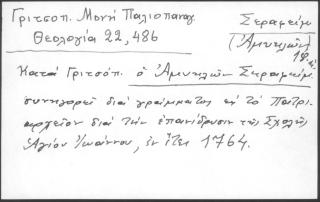 Γριτσοπ. Μονή Παλιοπαναγ.
Θεολογία 22, 486
Σεραφείμ
(Ἀμυκλῶν)
18.
Κατά Γριτσόπ. ὁ Ἀμυκλῶν Σεραφείμ.
συνηγορεῖ διά γράμματος εἰς τό Πατρι-
αρχεῖον διά τήν ἐπανίδρυσιν τῆς Σχολῆς
Ἁγίου Ἰωάννου, ἐν ἔτει 1764.